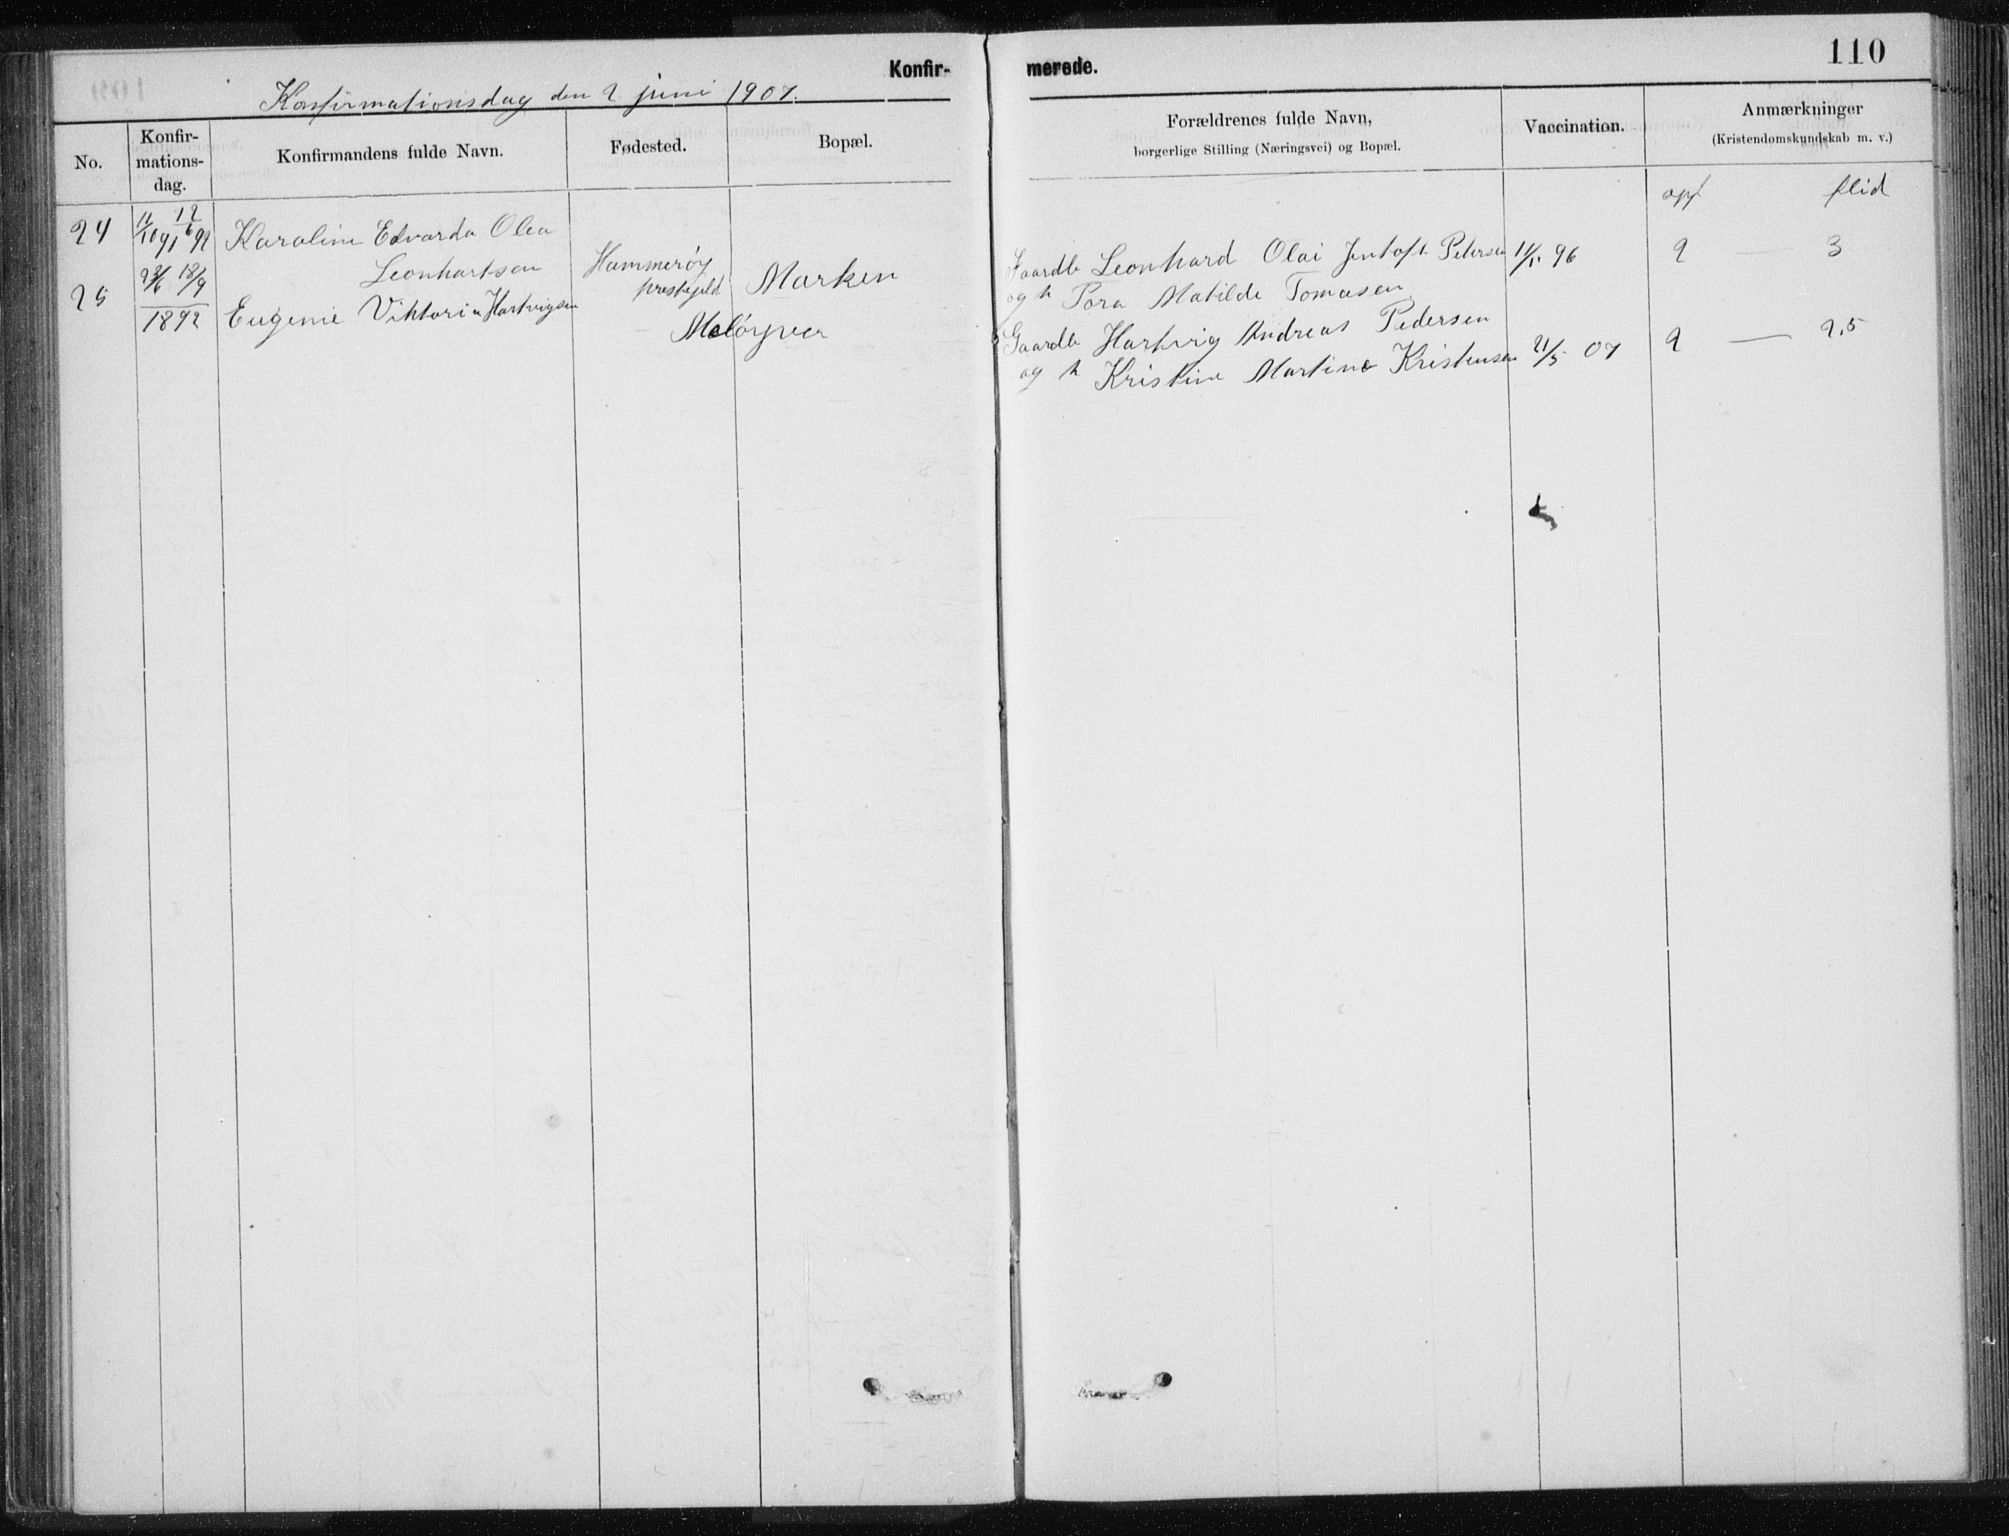 110
Konfir-
merede.
Konfirmationsdag den 2 juni 1907.
No.
Konfir-
mations-
dag.
Konfirmandens fulde Navn.
Fødested.
Bopæl.
Forældrenes fulde Navn,
borgerlige Stilling (Næringsvei) og Bopæl.
Vaccination.
Anmærkninger
(Kristendomskundskab m. v.)
opf flid
24 11/10 91 12/6 92 Karoline Edvarda Olea
Leonhartsen Hammerøy
prestegjeld Marken
Gaardb Leonhard Olai Jentoft Petersen 11/1 96 2 — 3
og h Tora Matilde Tomasen
25 23/6 18/9
1892 Eugenie Viktoria Hartvigsen
Meløyvær
Gaardb Hartvig Andreas Pedersen
og h Kristine Martine Kristensen 21/5 07 2 — 2,5